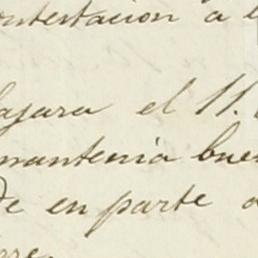 ontestacion a l
ajara el 11.
mantenia bue
de en parte a